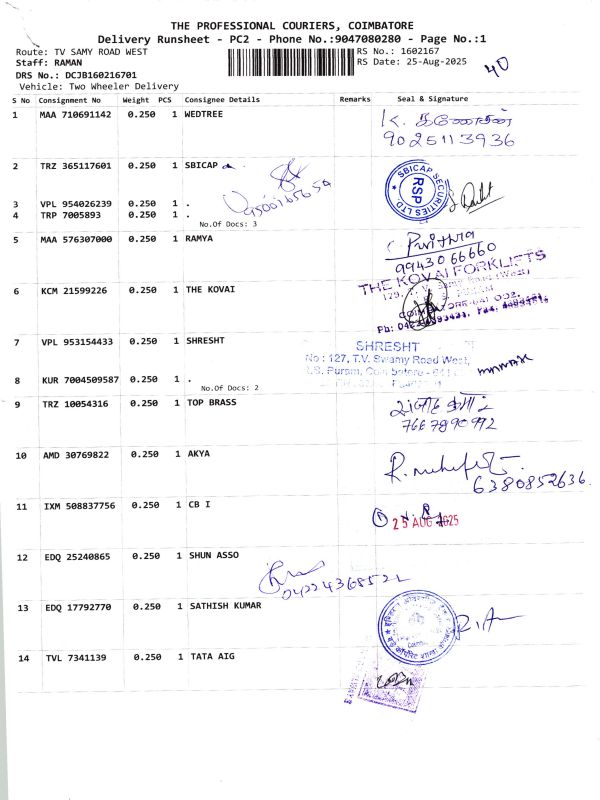 THE PROFESSIONAL COURIERS, COIMBATORE
Delivery Runsheet - PC2 - Phone No.:9047080280 - Page No.:1
Route: TV SAMY ROAD WEST
RS No.: 1602167
Staff: RAMAN
RS Date: 25-Aug-2025
40
DRS No.: DCJB160216701
Vehicle: Two Wheeler Delivery
S No Consignment No Weight PCS Consignee Details Remarks Seal & Signature
1 MAA 710691142 0.250 1 WEDTREE
K. கணேசன்
9025113936
2 TRZ 365117601 0.250 1 SBICAP
SBICAP SECURITIES LTD.
RSP
9500165654
3 VPL 954026239 0.250 1 .
4 TRP 7005893 0.250 1 .
No.Of Docs: 3
5 MAA 576307000 0.250 1 RAMYA
9943066660
6 KCM 21599226 0.250 1 THE KOVAI
THE KOVAI FORKLIFTS
7 VPL 953154433 0.250 1 SHRESHT
SHRESHT
No : 127, T.V. Swamy Road West,
8 KUR 7004509587 0.250 1 .
No.Of Docs: 2
9 TRZ 10054316 0.250 1 TOP BRASS
7667890992
10 AMD 30769822 0.250 1 AKYA
6380852636.
11 IXM 508837756 0.250 1 CB I
25 AUG 2025
12 EDQ 25240865 0.250 1 SHUN ASSO
04224368522
13 EDQ 17792770 0.250 1 SATHISH KUMAR
14 TVL 7341139 0.250 1 TATA AIG